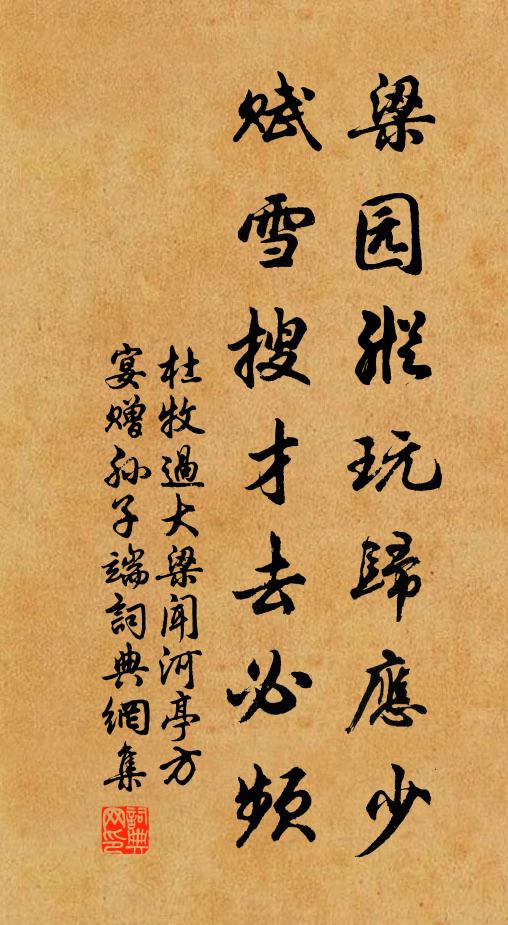 梁园縱玩歸應少
赋雪搜才去必頻
杜牧過大梁聞河亭方
宴赠孙子端詞典網集
詞典
网印